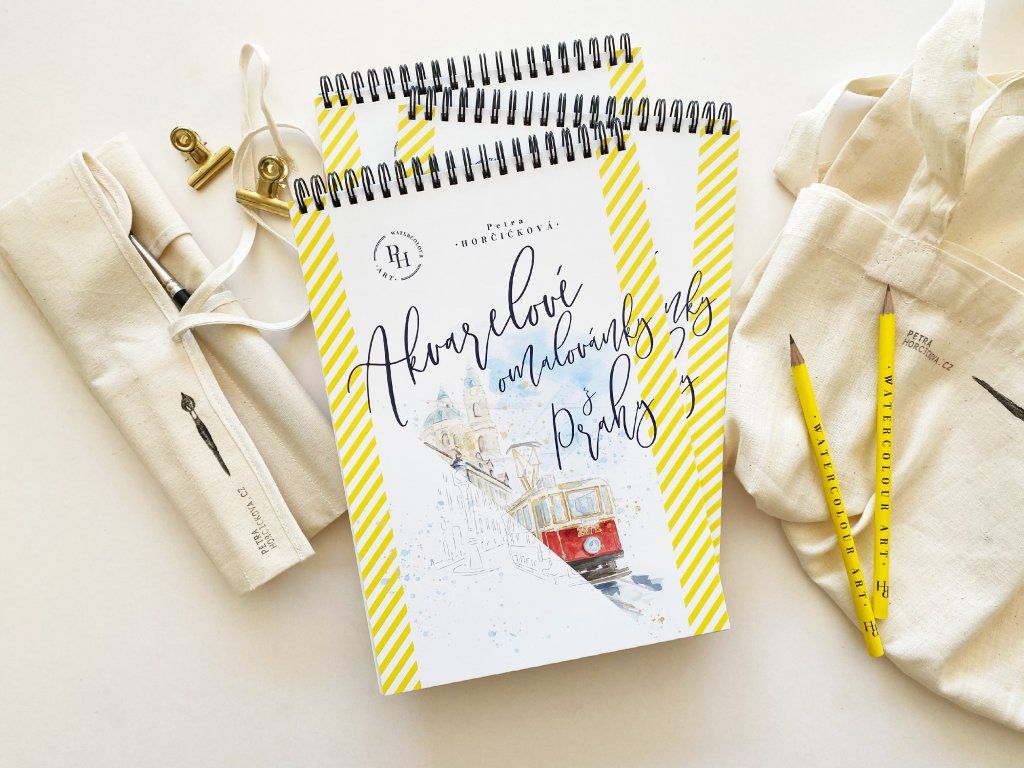 Petra
·HORČIČKOVÁ·
WATERCOLOUR
PH
·ART·
Akvarelové
omalovánky
z
Prahy
nky
y
PETRA
HORCICKOVA.CZ
PETRA
HORCICKOVA.CZ
·WATERCOLOUR ART· PH
·WATERCOLOUR ART· PH